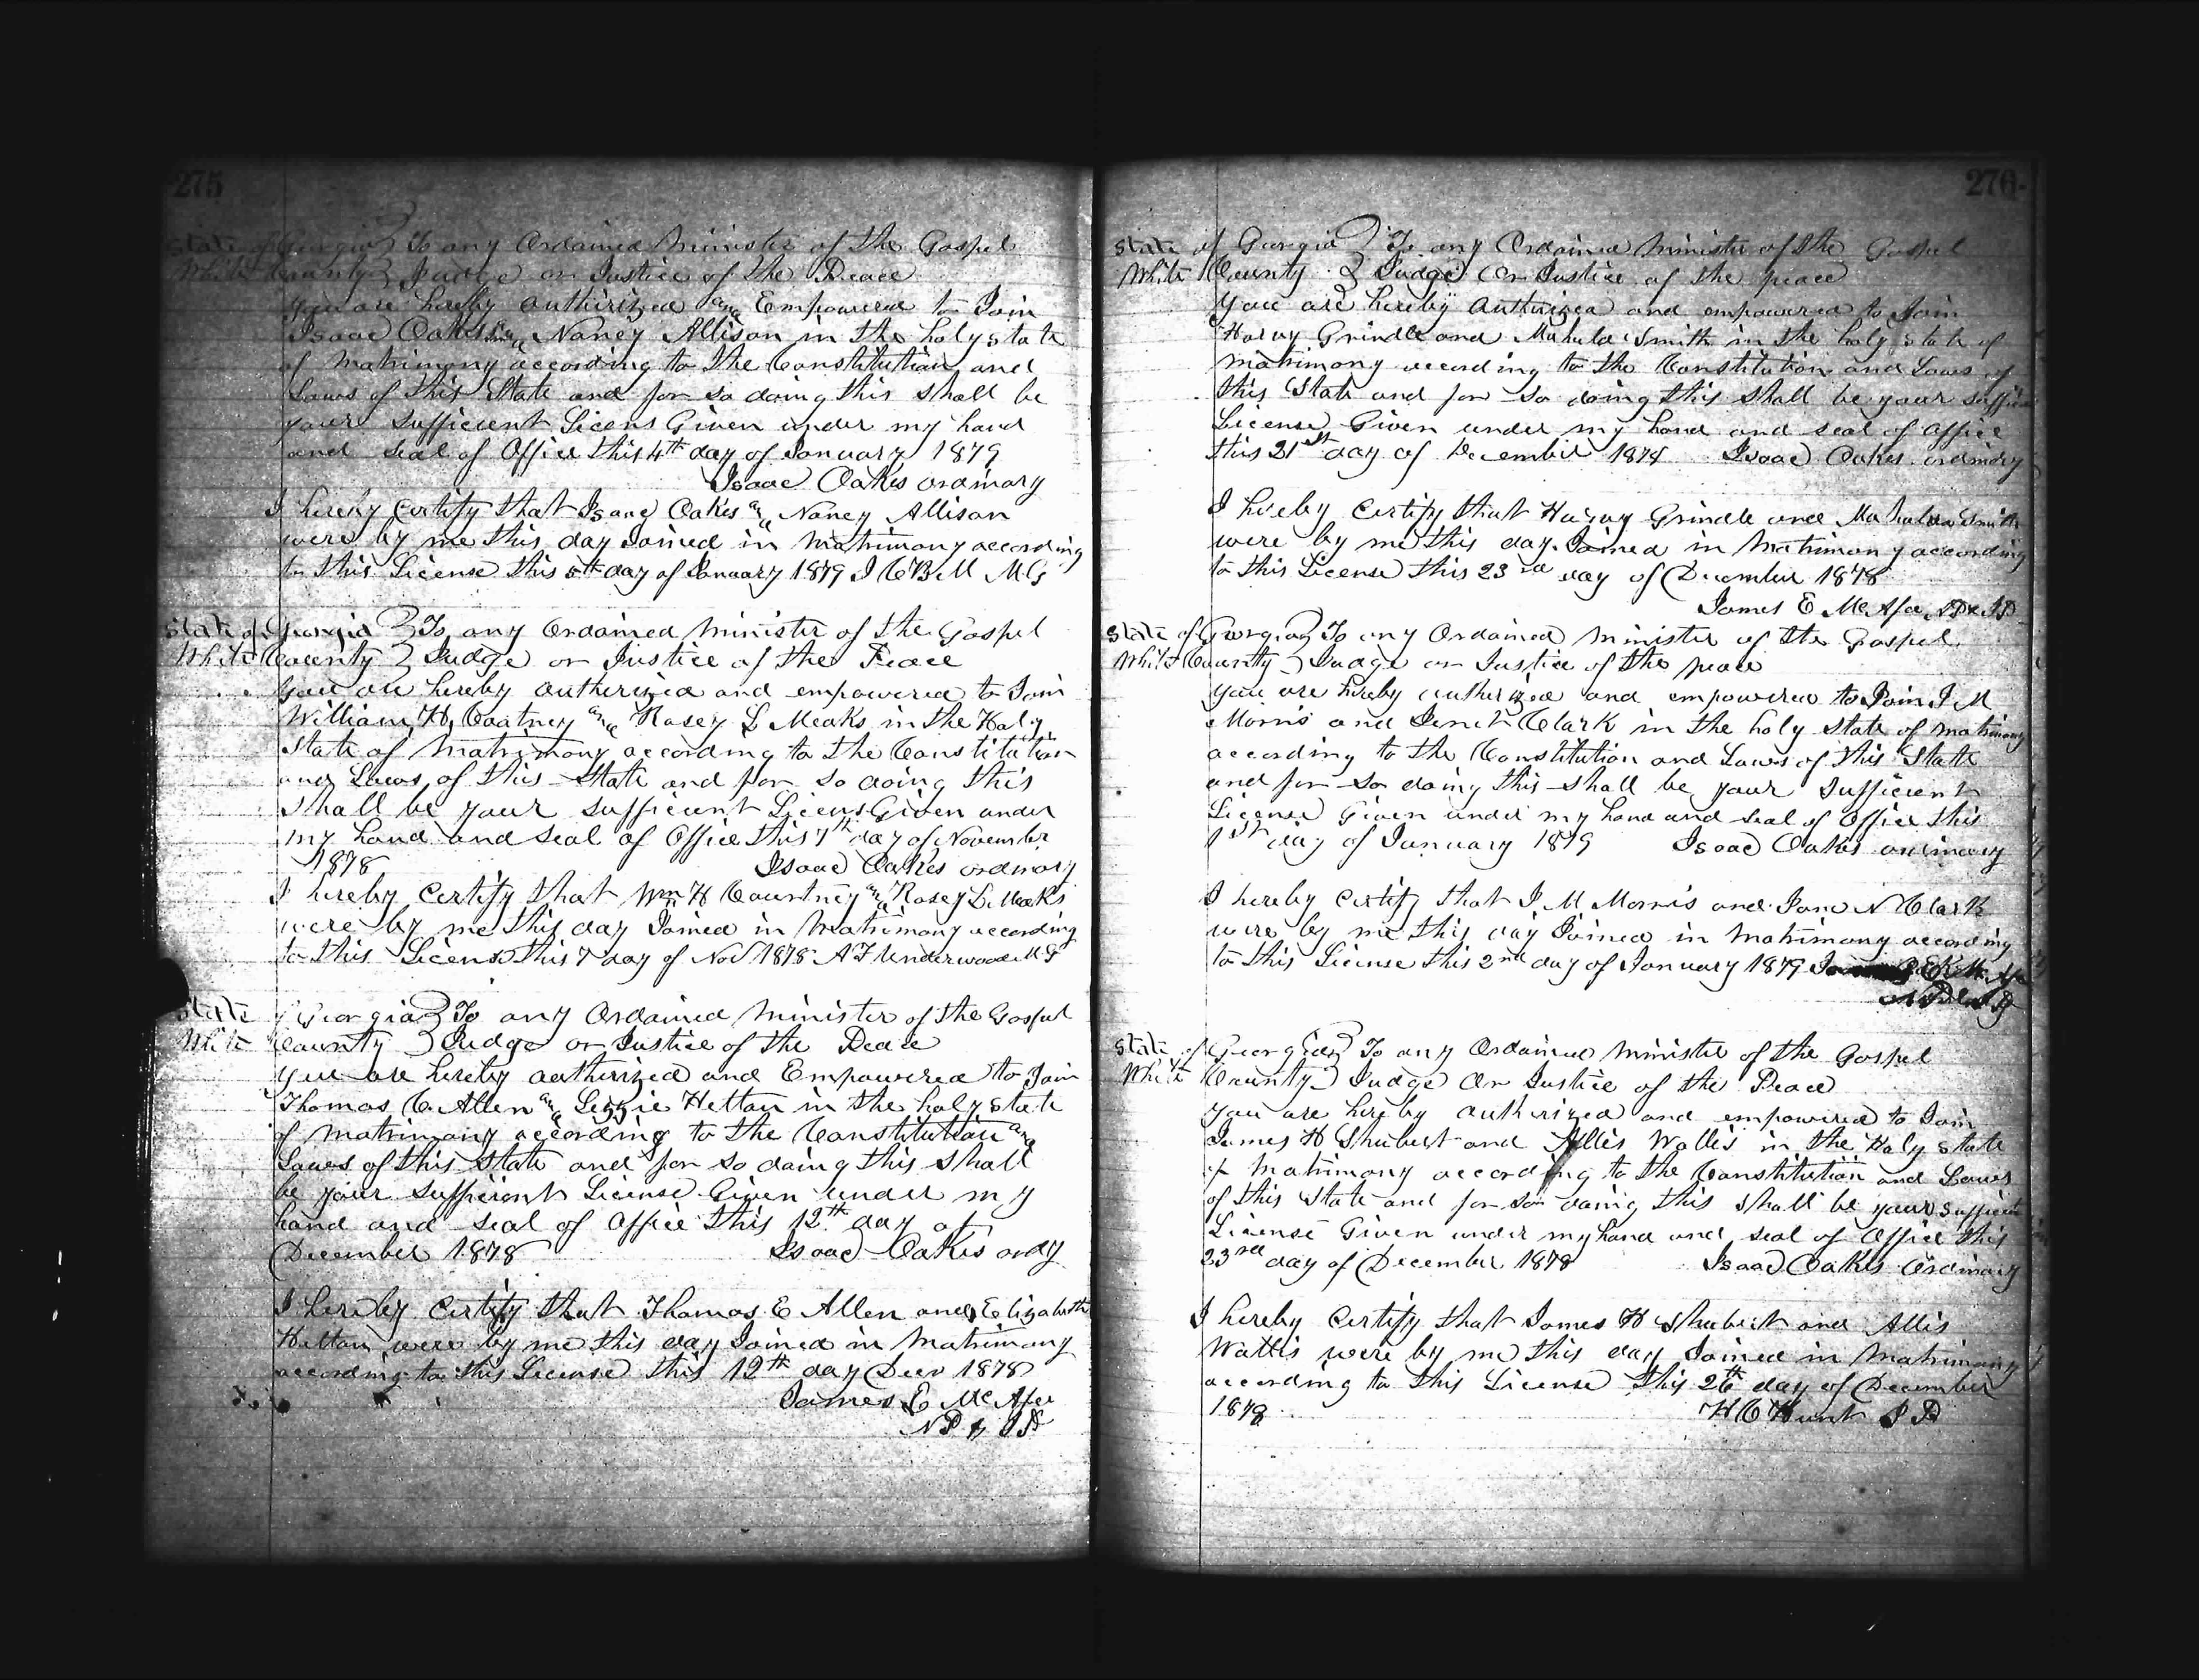 275
State of Georgia } To any Ordained Minister of the Gospel
White County } Judge or Justice of the Peace
You are hereby authirized and Empowered to Join
Isaac Oakes and Nancy Allison in the holy state
of Matrimony according to the Constitution and
Laws of this State and for so doing this shall be
your sufficient Licens Given under my hand
and seal of Office this 4th day of January 1879
Isaac Oakes ordinary
I hereby certify that Isaac Oakes and Nancy Allison
were by me this day Joined in Matrimony according
to this License this 5th day of January 1879 J C B M M G
State of Georgia } To any Ordained Minister of the Gospel
White County } Judge or Justice of the Peace
You are hereby authorized and empowered to Join
William H. Coatney and Rosey L Meaks in the Holy
State of Matrimony according to the Constitution
and Laws of this State and for so doing this
shall be your sufficient Licens Given under
my hand and seal of Office this 7th day of November
1878 Isaac Oakes ordinary
I hereby certify that Wm H Courtney and Rosey L. Meaks
were by me this day Joined in Matrimony according
to this License this 7 day of Nov 1878 A F Underwood M G
State Georgia } To any Ordained Minister of the Gospel
White County } Judge or Justice of the Peace
You are hereby authorized and Empowered to Join
Thomas C. Allen and Lizzie Helton in the holy state
of Matrimony according to the Constitution and
Laws of this State and for so doing this shall
be your sufficient License Given under my
hand and seal of Office this 12th day of
December 1878 Isaac Oakes ordy
I hereby Certify that Thomas E Allen and Elizabeth
Helton were by me this day Joined in Matrimony
according to this License this 12th day Decr 1878
James E McAfee
N P & J P
276
State of Georgia } To any Ordained Minister of the Gospel
White County } Judge Or Justice of the peace
You are hereby Authirized and empowered to Join
Harvy Grindle and Mahula Smith in the holy state of
matrimony according to the Constitution and Laws of
this State and for so doing this shall be your suffici
License Given under my hand and seal of office
this 21st day of December 1878 Isaac Oakes ordinary
I hereby Certify that Harvy Grindle and Mahulda Smith
were by me this day Joined in Matrimony according
to this License this 23rd day of December 1878
James E McAfee NP & JP
State of Georgia } To any Ordained Minister of the Gospel
White County } Judge or Justice of the peace
You are hereby authorized and empowered to Join J M
Morris and Jane N Clark in the holy state of matrimony
according to the Constitution and Laws of this State
and for so doing this shall be your sufficient
License Given under my hand and seal of Office this
1st day of January 1879 Isaac Oakes ordinary
I hereby Certify that J M Morris and Jane N Clark
were by me this day Joined in Matrimony according
to this License this 2nd day of January 1879
State of Georgia } To any Ordained Minister of the Gospel
White County } Judge Or Justice of the Peace
You are hereby authorized and empowered to Join
James H Shubert and Allis Wallis in the Holy state
of Matrimony according to the Constitution and Laws
of this State and for son doing this shall be your sufficient
License Given under my hand and seal of Office this
23rd day of December 1878 Isaac Oakes Ordinary
I hereby Certify that James H Shubert and Allis
Wallis were by me this day Joined in Matrimony
according to this License this 26th day of December
1878 H C Hunt J P